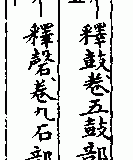 釋鼓卷五鼓部
釋磬卷九石部